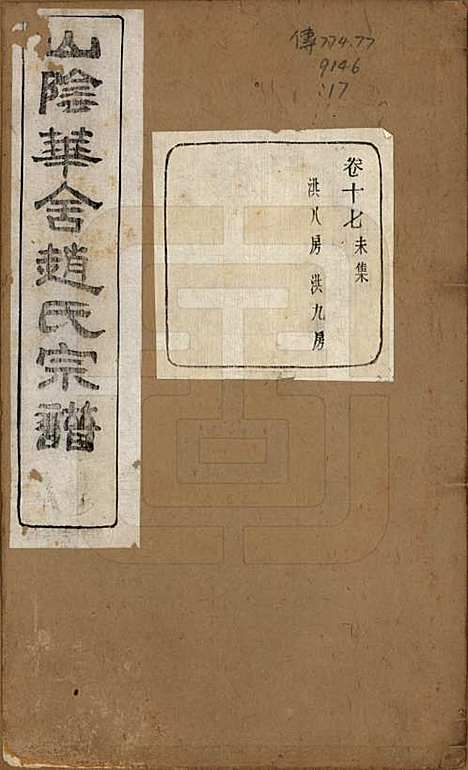 傳 774.77
9146
:17
卷十七 未集
洪八房 洪九房
山陰華舍趙氏宗譜